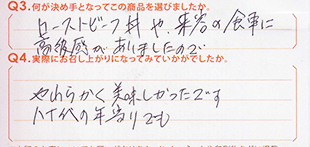 Q3.何が決め手となってこの商品を選びましたか。
ローストビーフ丼や、来客の食事に
高級感がありましたので
Q4.実際にお召し上がりになってみていかがでしたか。
やわらかく美味しかったです
八十代の年寄りでも